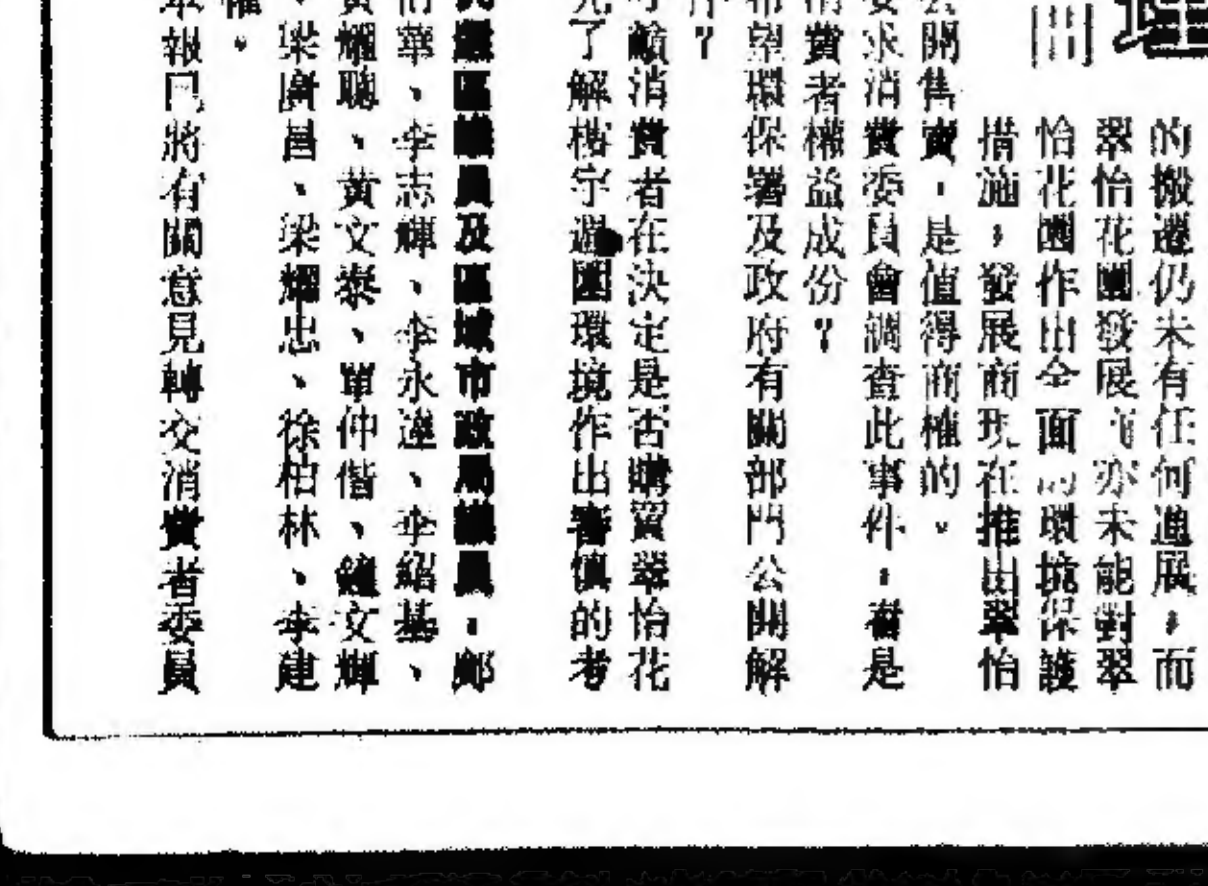 理
的搬遷仍未有任何進展，而
翠怡花園發展商亦未能對翠
怡花園作出全面的環境保護
措施，發展商現在推出翠怡
公開售賣，是值得商榷的。
要求消費委員會調查此事件，看是
消費者權益成份？
希望環保署及政府有關部門公開解
？
消費者在決定是否購買翠怡花
了解樓宇週圍環境作出審慎的考
區議員及區域市政局議員，鄺
華、李志輝、李永達、李紹基、
黃耀聰、黃文泰、單仲偕、鐘文輝
、梁廣昌、梁耀忠、徐柏林、李建
權。
本報已將有關意見轉交消費者委員